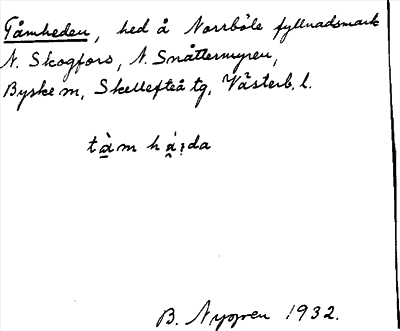 Tåmheden, hed å Norrböle fyllnadsmark
N. Skogfors, N. Snåttermyren,
Byske sn, Skellefteå tg, Västerb. l.
tàm há̯:da
B. Nygren 1932.